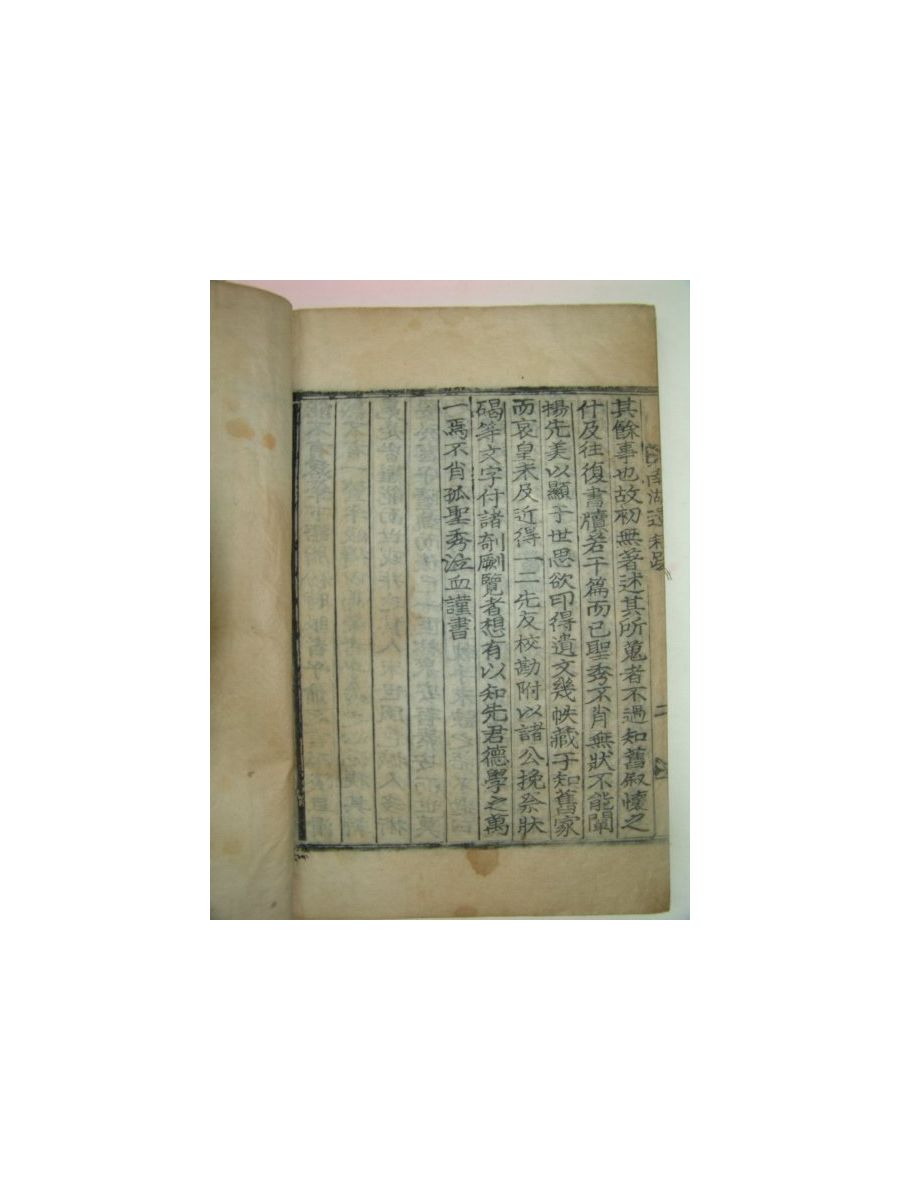 其餘事也故初無著述其所蒐者不過知舊敍懷之
什及往復書牘若干篇而已聖秀不肖無狀不能闡
揚先美以顯于世思欲印得遺文幾帙藏于知舊家
而哀皇未及近得一二先友校勘附以諸公挽祭狀
碣等文字付諸剞劂覽者想有以知先君德學之萬
一焉不肖孤聖秀泣血謹書
湖遺
二